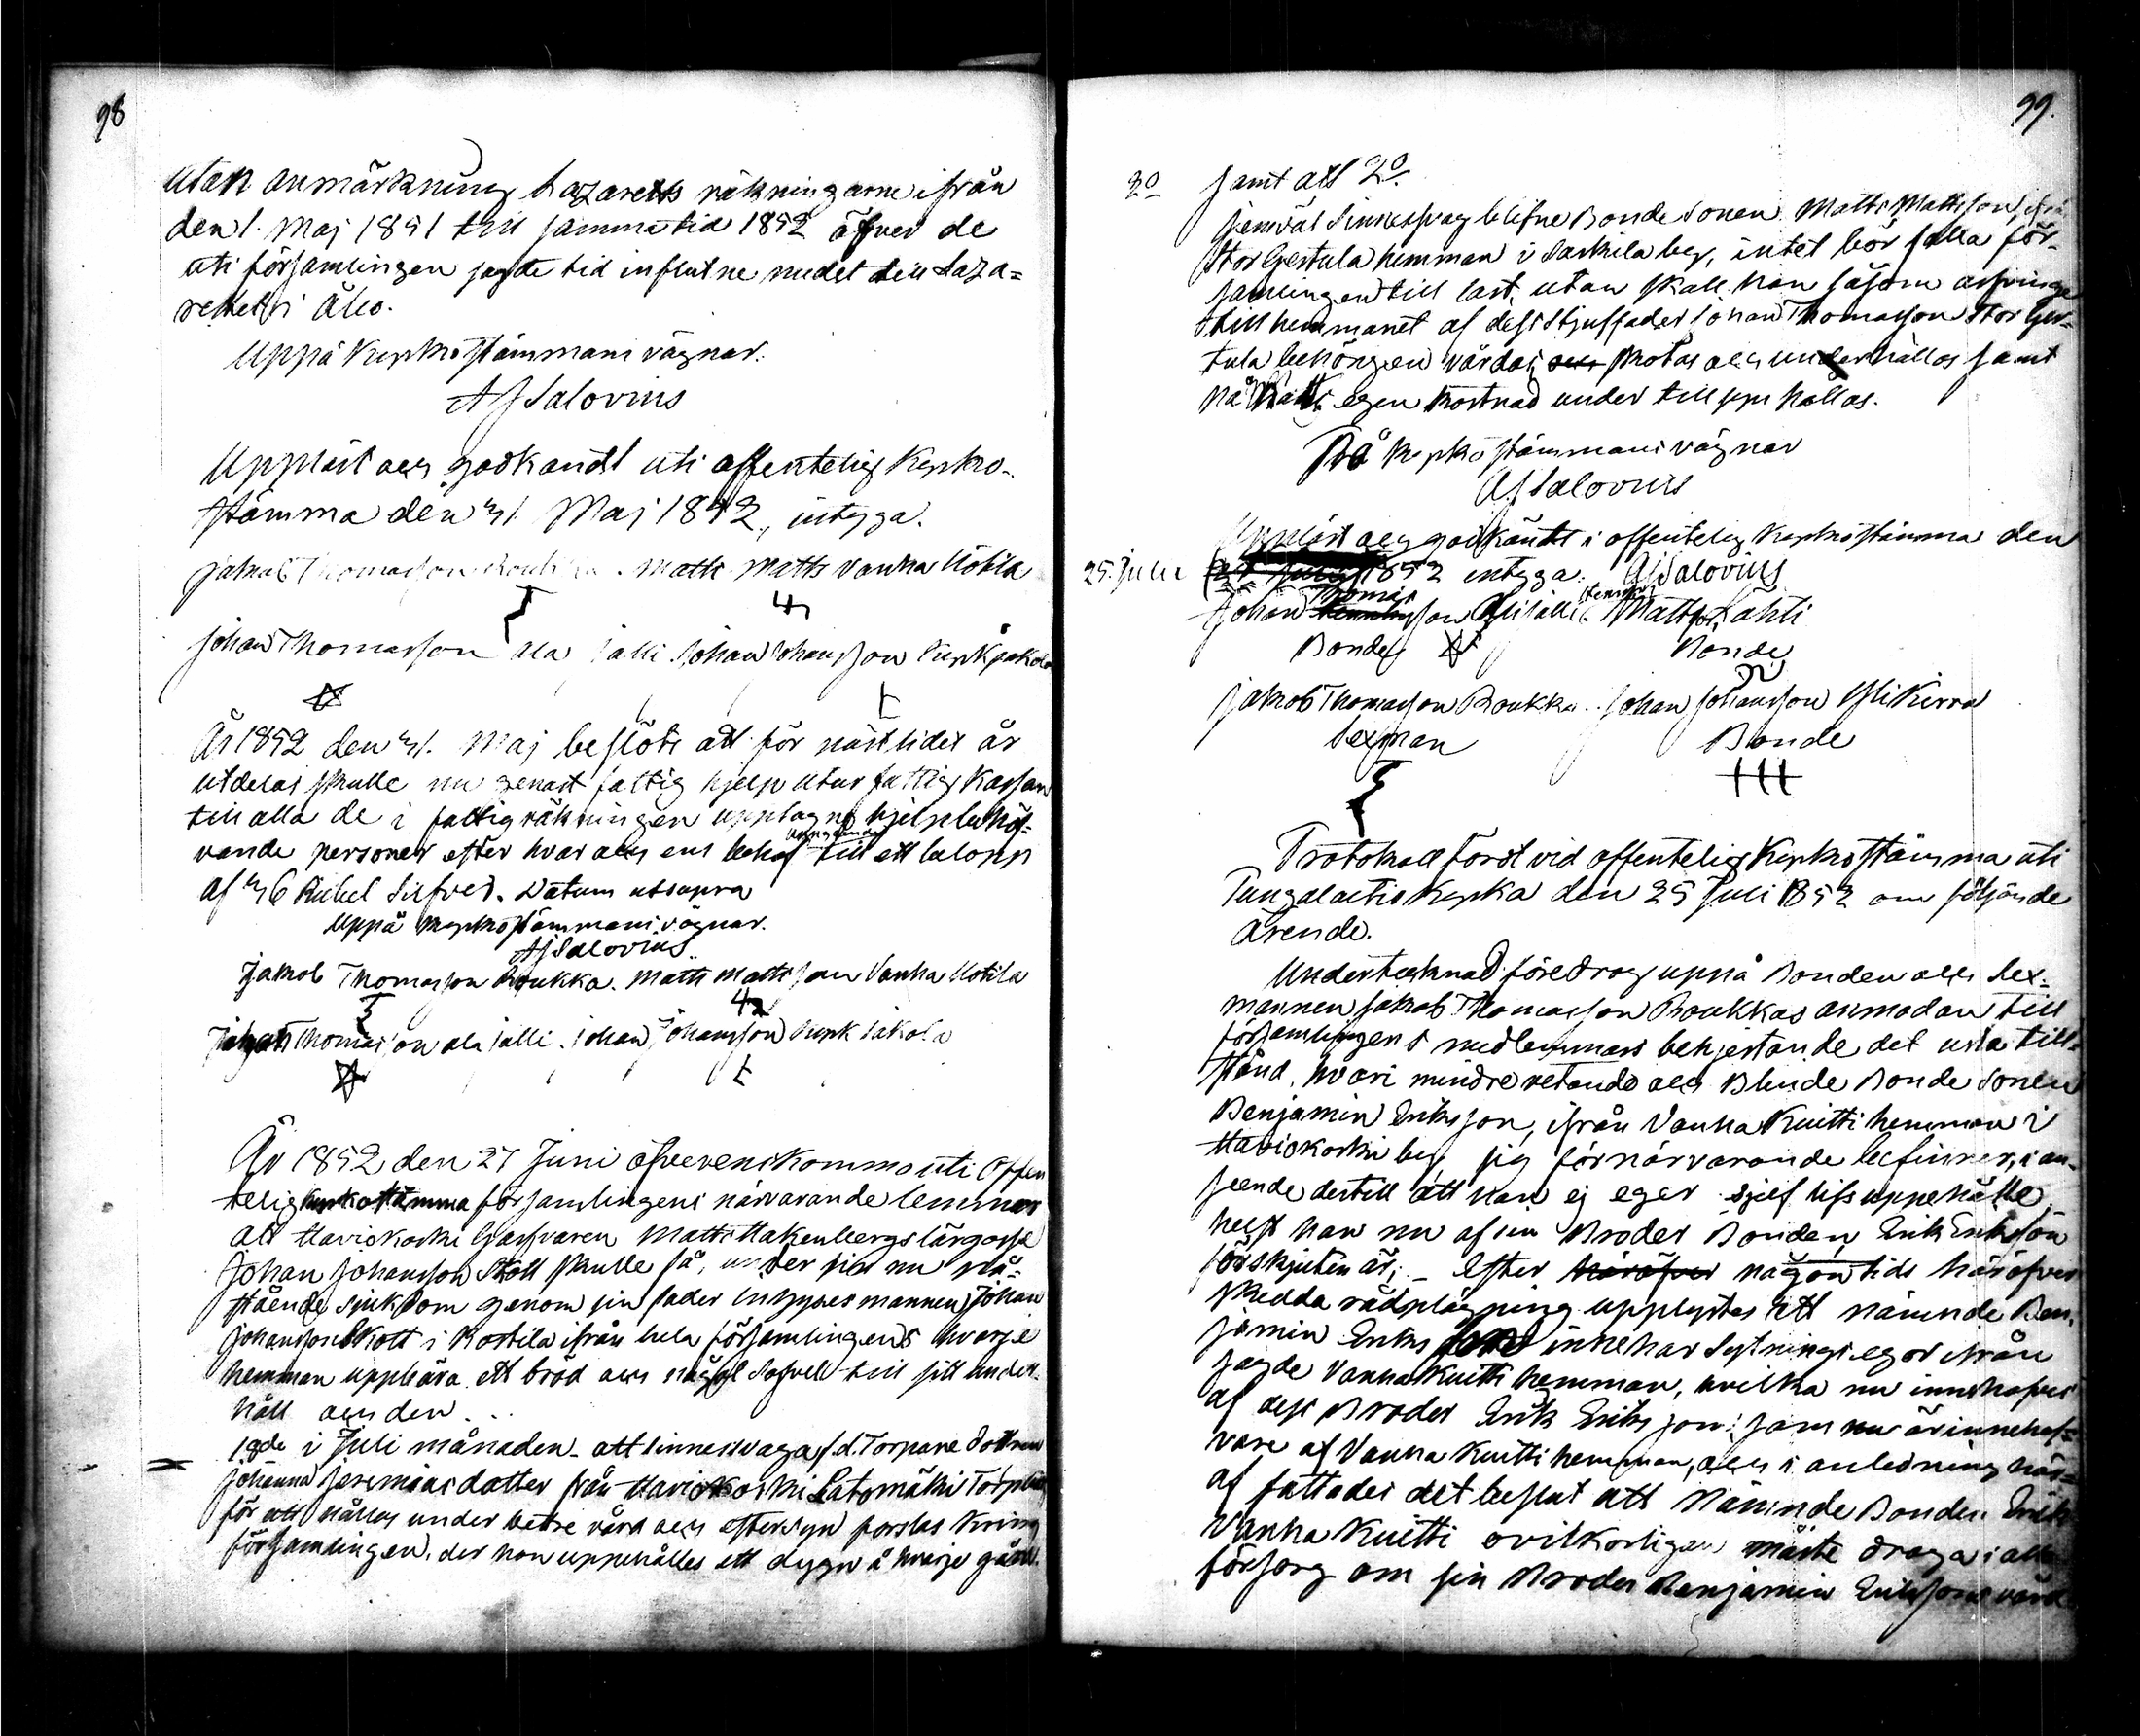 98
utan anmärkning Lazaretts räkningarne ifrån
den 1. Maj 1851 till samma tid 1852 öfver de
uti församlingen sagde tid influtne medel till Laza=
rettet i Åbo.
Uppå Kyrkostämmans vägnar.
AJSalovius
Uppläst och godkändt uti offentelig Kyrko-
stämma den 31. Maj 1852, intyga.
Jakob Thomasson Roukka. Matts Matts Vanha Uotila
Johan Thomasson Ala Jalli Johan Johansson Pirk Jakola
År 1852 den 31. Maj beslöts att för nästlidet år
utdelas skulle nu genast fattig hjelp utur fattig Kassan
till alla de i fattigräkningen upptagne hjelpbehöf=
vande personer efter hvar och ens behof till ett belopp
af 36 Rubel Silfver. Datum utsupra
Uppå Kyrkostämmans vägnar.
AJSalovius.
Jakob Thomasson Roukka. Matts Mattsson Vanha Uotila
Johan Thomasson Ala Jalli. Johan Johansson Pirk Jakola
År 1852 den 27 Juni öfverenskommo uti Offen
telig Kyrkostämma församlingens närvarande lemmar
att Haviokoski Garfvaren Matts Hakenbergs lärgosse
Johan Johansson Skott skulle få, under sin nu på-
stående sjukdom genom sin fader Inhysesmannen Johan
Johansson Skott i Kostila ifrån hela församlingens hvarje
hemman uppbära ett bröd och något Sofvel till sitt under-
håll och den
18de i Juli månaden - att sinnessvaga f.d. Torpare dottren
Johanna Jeremiasdotter från Haviokoski Latomäki Torp
för att hållas under bettre vård och eftersyn forslas kring
församlingen, der hon uppehålles ett dygn å hvarje gård.
99.
2o samt att 2o
jemväl Sinnessvag blefne Bonde Sonen Matts Mattsson ifrån
Stor Gertula hemman i Sarkila by, intet bör falla för-
samlingen till last, utan skall han såsom
till hemmanet af dess Stjuffader Johan Thomasson Stor Ger-
tula behörigen vårdas, skötas och underhållas samt
på Matts egen kostnad under tillsyn hållas.
På Kyrkostämmans vägnar
AJSalovius
Uppläst och godkändt i offentelig Kyrkostämma den
25. Julii 1852 intyga. AJSalovius
Johan Thomasson Ylijälli. Mattsson Lahti
Bonde Bonde
Jakob Thomasson Roukka. Johan Johansson Yli Kirra
Sexman Bonde
Protokoll fördt vid offentelig Kyrkostämma uti
Pungalaitio Kyrka den 25 Juli 1852 om följande
Ärende.
Undertecknad föredrog uppå Bonden och Sex=
mannen Jakob Thomasson Roukkas anmodan till
församlingens medlemmars behjertande det usla till=
stånd, hvari mindre vetande och Blinde Bonde Sonen
Benjamin Eriksson, ifrån Vanha Kuitti hemman i
Haviokoski by, sig för närvarande befinner, i an-
seende dertill att han ej eger sjelf lifsuppehälle,
helst han nu af sin Broder Bonden Erik Eriksson
förskjuten är; - Efter häröfver någon tids häröfver
skedda rådplägning upplystes att nämnde Ben-
jamin Eriksson innehar Sytnings egor ifrån
sagde Vanha Kuitti hemman, hvilka nu innehafves
af dess Broder Erik Eriksson som nu är innehaf=
vare af Vanha Kuitti hemman, och i anledning här=
af fattades det beslut att nämnde Bonden Erik
Vanha Kuitti ovilkorligen måste draga i allo
försorg om sin Broder Benjamin Erikssons vård